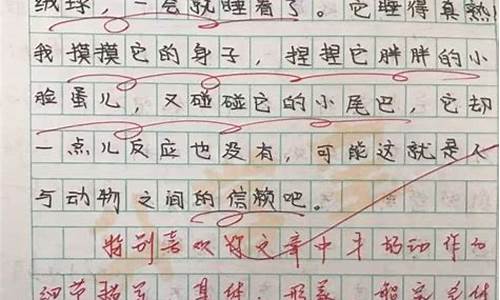 绒球，一会就睡着了。它睡得真熟
我摸摸它的身子，捏捏它胖胖的小
脸蛋儿，又碰碰它的小尾巴，它却
一点儿反应也没有，可能这就是人
与动物之间的信赖吧。
特别喜欢你文章中的动作和
细节描写，具体，形象